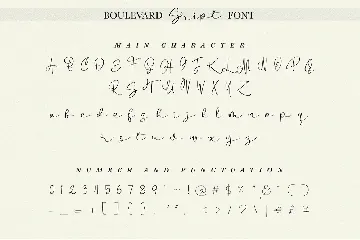 BOULEVARD Script FONT
MAIN CHARACTER
A B C D E F G H I J K L M N O P Q
R S T U V W X Y Z
a b c d e f g h i j k l m n o p q
r s t u v w x y z
NUMBER AND PUNCTUATION
0 1 2 3 4 5 6 7 8 9 ~ ! @ # $ % ^ & * ( )
_ - = + [ ] { } : ; " ' , . < > / ? \ |